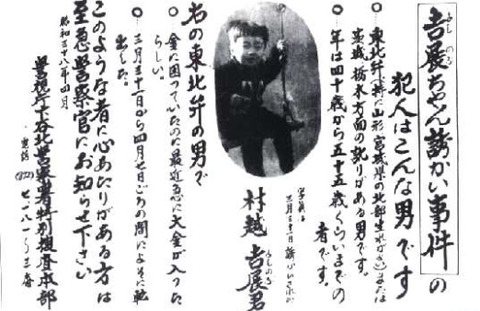 吉展ちゃん誘かい事件の
犯人はこんな男です
○ 東北弁(特に山形宮城県の北部生れ)または
茨城栃木方面の訛りがある男です。
○ 年は四十歳から五十五歳くらいまでの
者です。
写真は
三月三十一日誘かいされた
村越吉展君
右の東北弁の男で
○ 金に困っていたのに最近急に大金が入った
らしい。
○ 三月三十一日から四月七日ごろの間によそに転
出した。
このような者に心あたりがある方は
至急警察官にお知らせ下さい
昭和三十八年四月
警視庁下谷北警察署特別捜査本部
電話